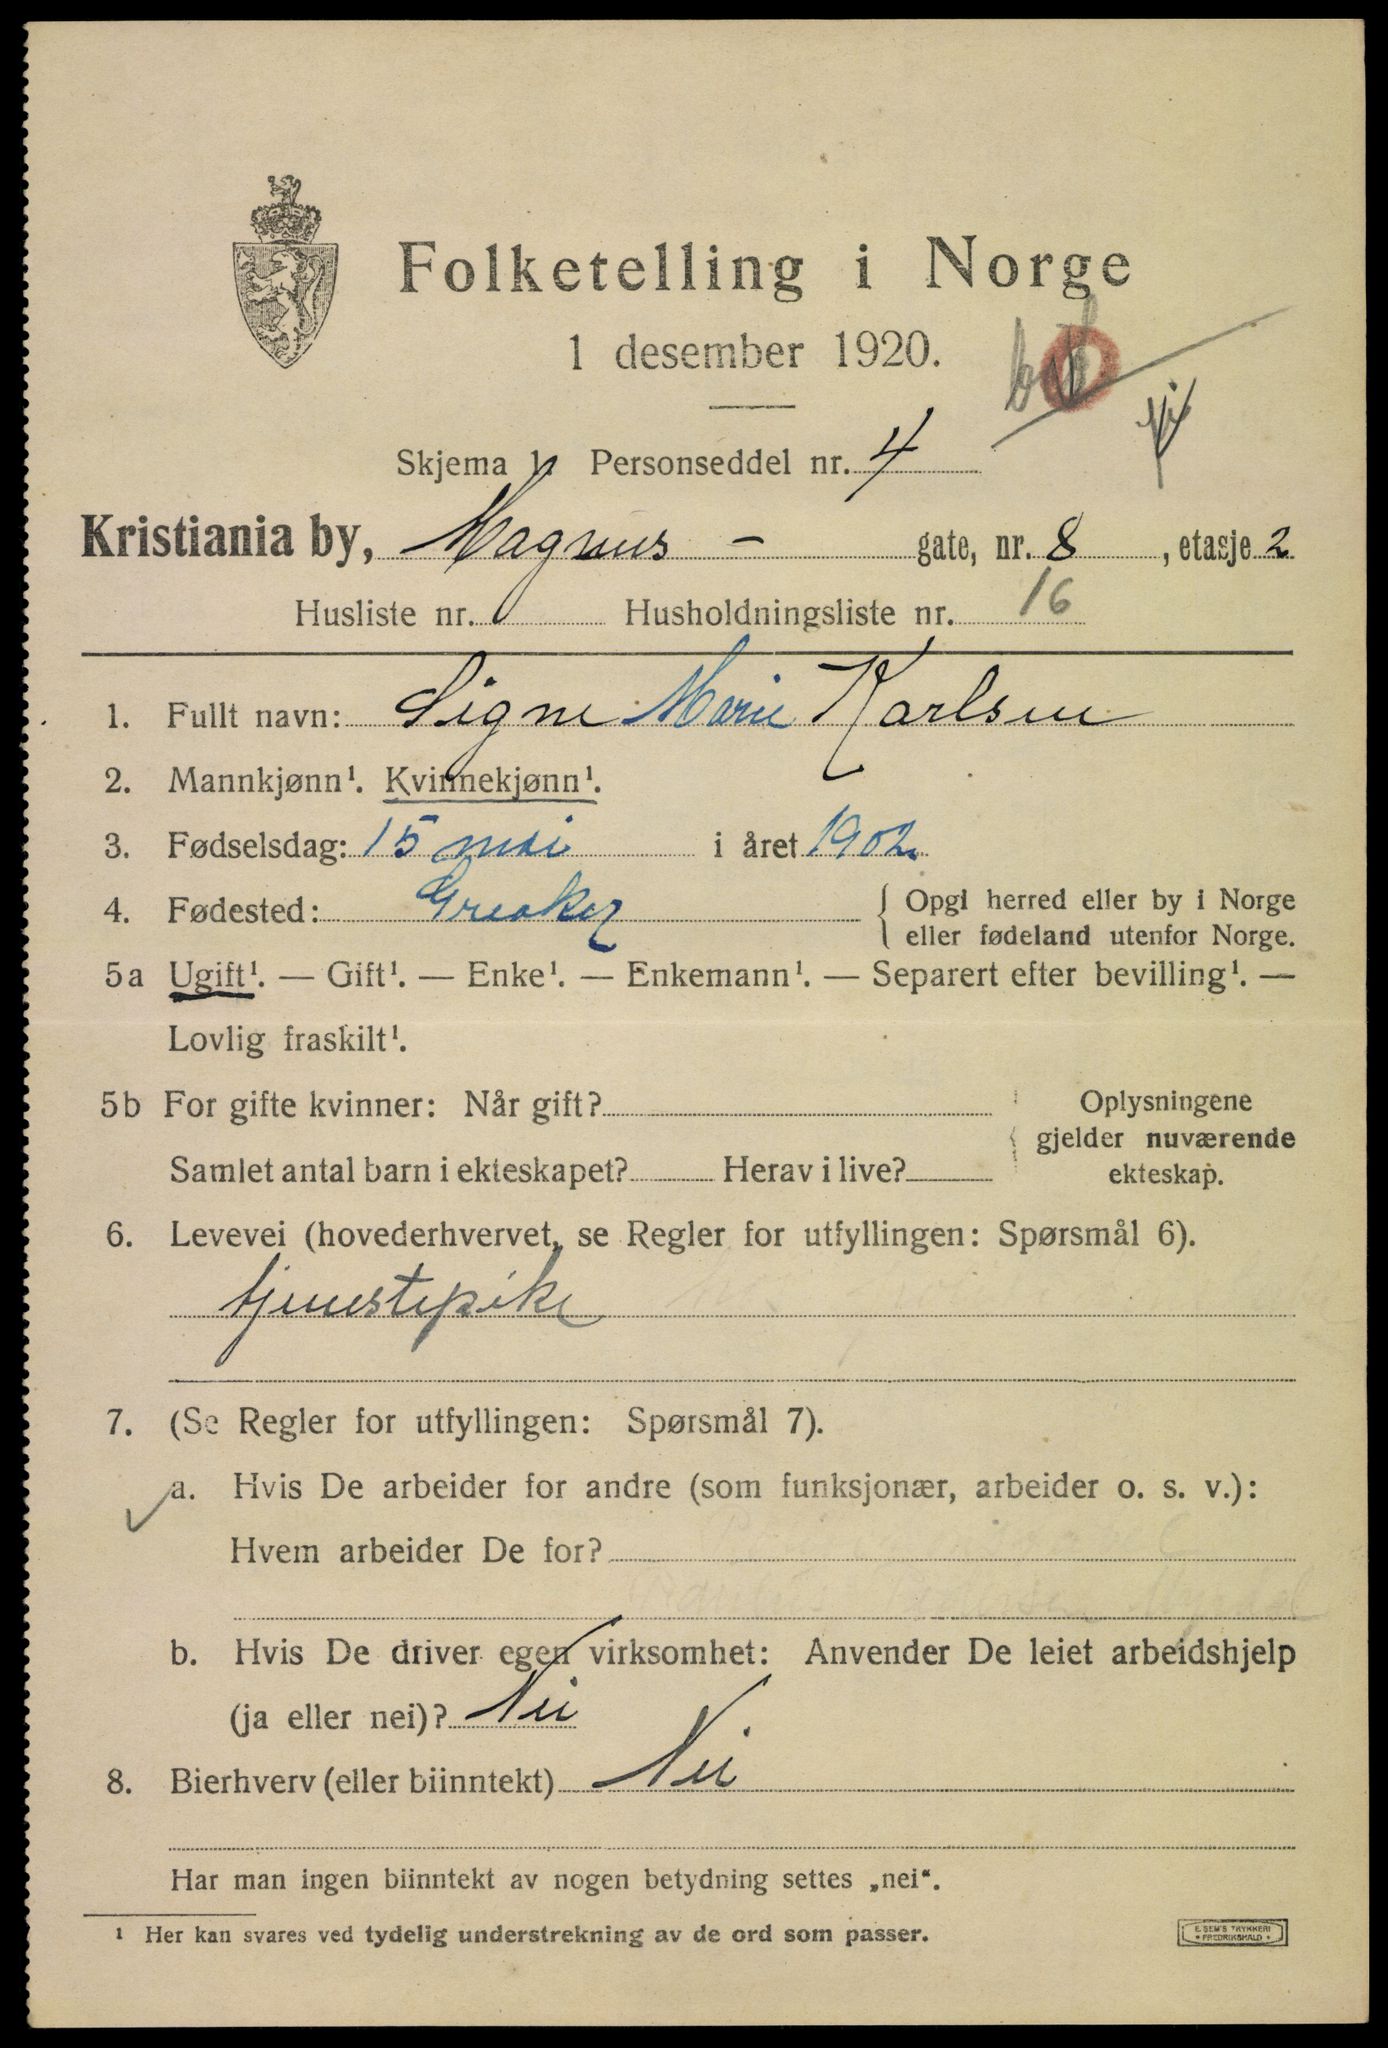 Folketelling i Norge
1 desember 1920.
Skjema 1. Personseddel nr. 4
Kristiania by, Magnus - gate, nr. 8, etasje 2
Husliste nr. Husholdningsliste nr. 16
1. Fullt navn: Signe Marie Karlsen
2. Mannkjønn¹. Kvinnekjønn¹.
3. Fødselsdag: 15 mai i året 1902
4. Fødested: Greaker { Opgi herred eller by i Norge
eller fødeland utenfor Norge.
5a Ugift¹. — Gift¹. — Enke¹. — Enkemann¹. — Separert efter bevilling¹. —
Lovlig fraskilt¹.
5b For gifte kvinner: Når gift? Oplysningene
gjelder nuværende
Samlet antal barn i ekteskapet? Herav i live? ekteskap.
6. Levevei (hovederhvervet, se Regler for utfyllingen: Spørsmål 6).
tjenestepike
7. (Se Regler for utfyllingen: Spørsmål 7).
a. Hvis De arbeider for andre (som funksjonær, arbeider o. s. v.):
Hvem arbeider De for?
Pedersen
b. Hvis De driver egen virksomhet: Anvender De leiet arbeidshjelp
(ja eller nei)? Nei
8. Bierhverv (eller biinntekt) Nei
Har man ingen biinntekt av nogen betydning settes „nei“.
¹ Her kan svares ved tydelig understrekning av de ord som passer.
E. SEM'S TRYKKERI
FREDRIKSHALD